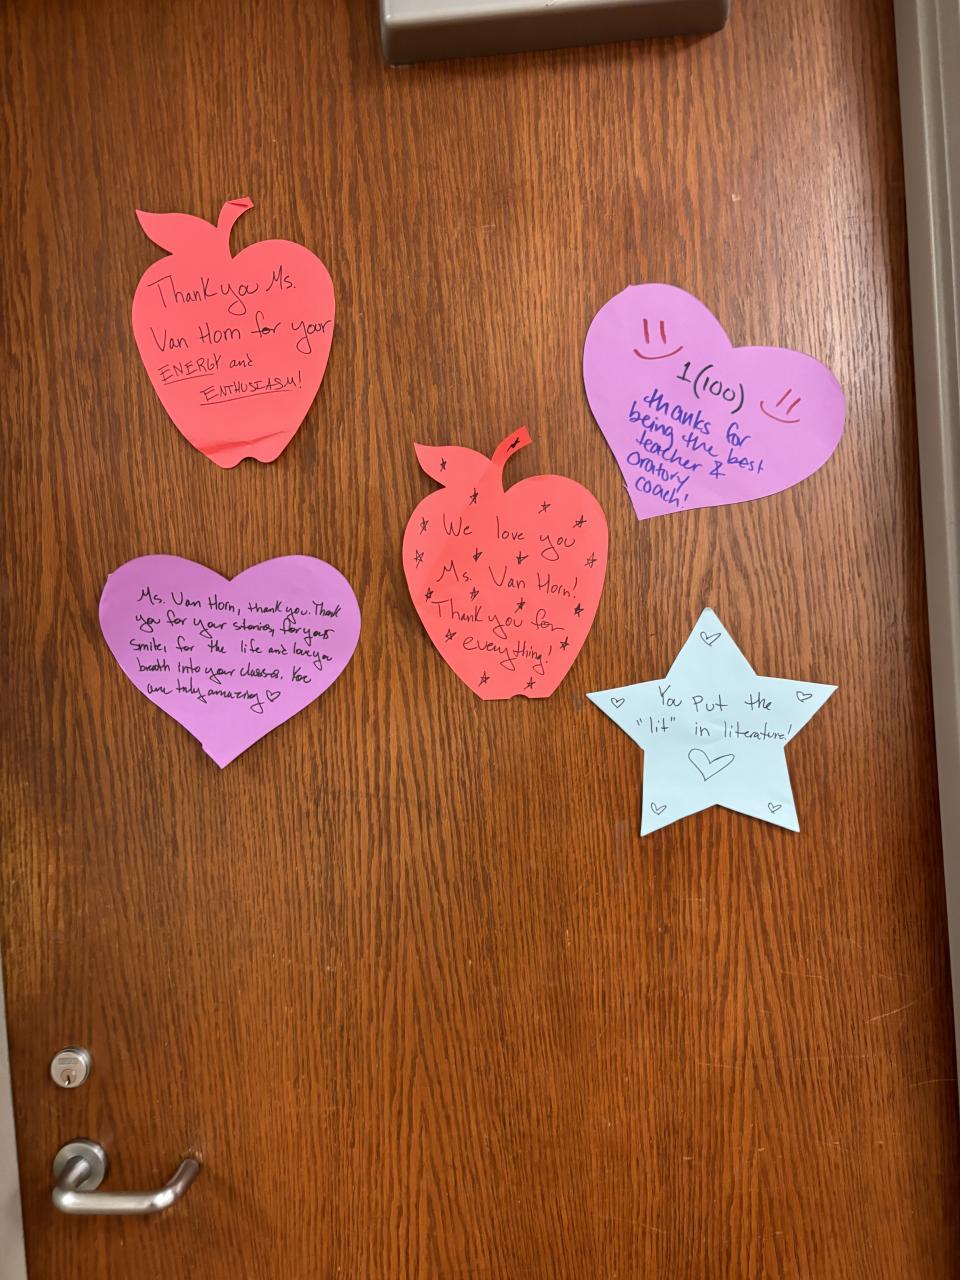 Thank you Ms.
Van Horn for your
ENERGY and
ENTHUSIASM!
1(100)
thanks for
being the best
teacher &
oratory
coach!
We love you
Ms. Van Horn!
Thank you for
everything!
Ms. Van Horn, thank you. Thank
you for your stories, for your
smile, for the life and love you
breath into your classes. You
are truly amazing
You put the
"lit" in literature!